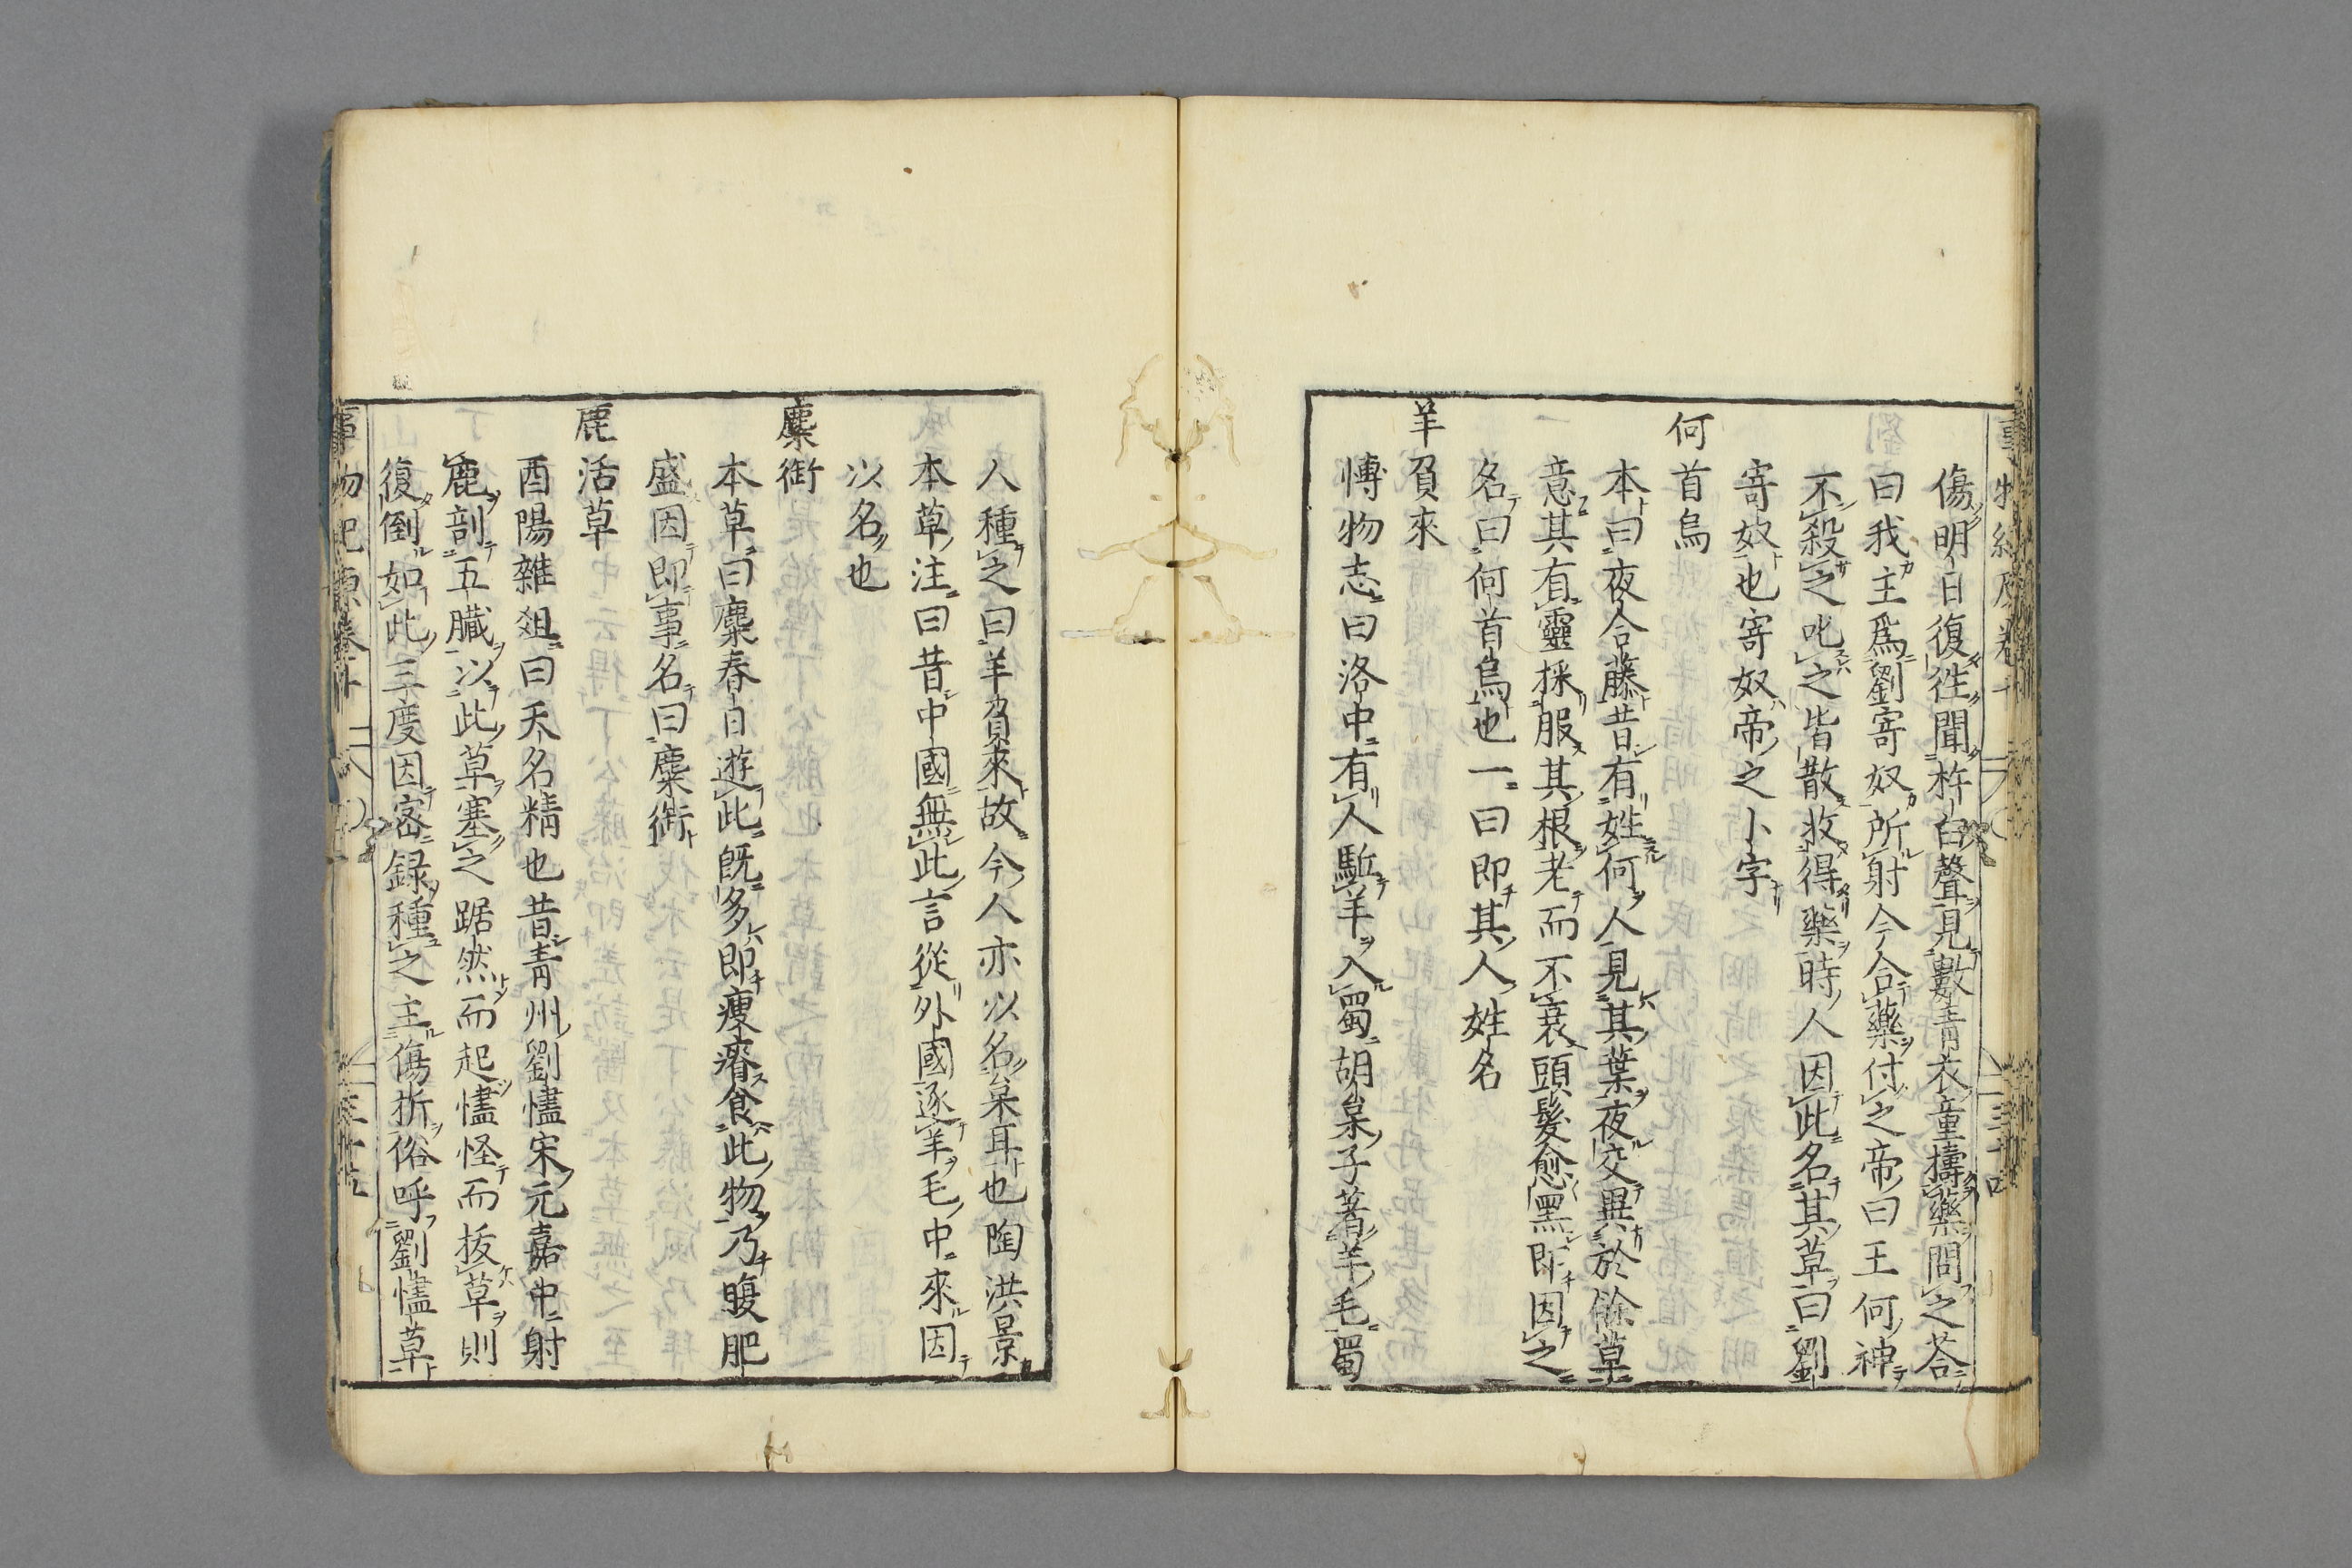 傷明日復徃聞杵臼聲見數青衣童擣藥問之荅
曰我主爲劉寄奴所射今合藥付之帝曰王何神
不殺之叱之皆散收得藥時人因此名其草曰劉
寄奴也寄奴帝之小字
何首烏
本曰夜合藤昔有姓何人見其葉夜交異於餘草
意其有靈採服其根老而不衰頭髮愈黑即因之
名曰何首烏也一曰即其人姓名
羊負來
愽物志曰洛中有人駈羊入蜀胡枲子著羊毛蜀
人種之曰羊負來故今人亦以名枲耳也陶洪景
本草注曰昔中國無此言從外國逐羊毛中來因
以名也
麋銜
本草曰麋春日遊此既多即痩瘠食此物乃腹肥
盛因即事名曰麋銜
鹿活草
酉陽雜爼曰天名精也昔青州劉㦢宋元嘉中射
麁剖五臟以此草塞之踞然而起㦢怪而拔草則
復倒如此三度因密録種之主傷折俗呼劉㦢草
事物紀原卷十